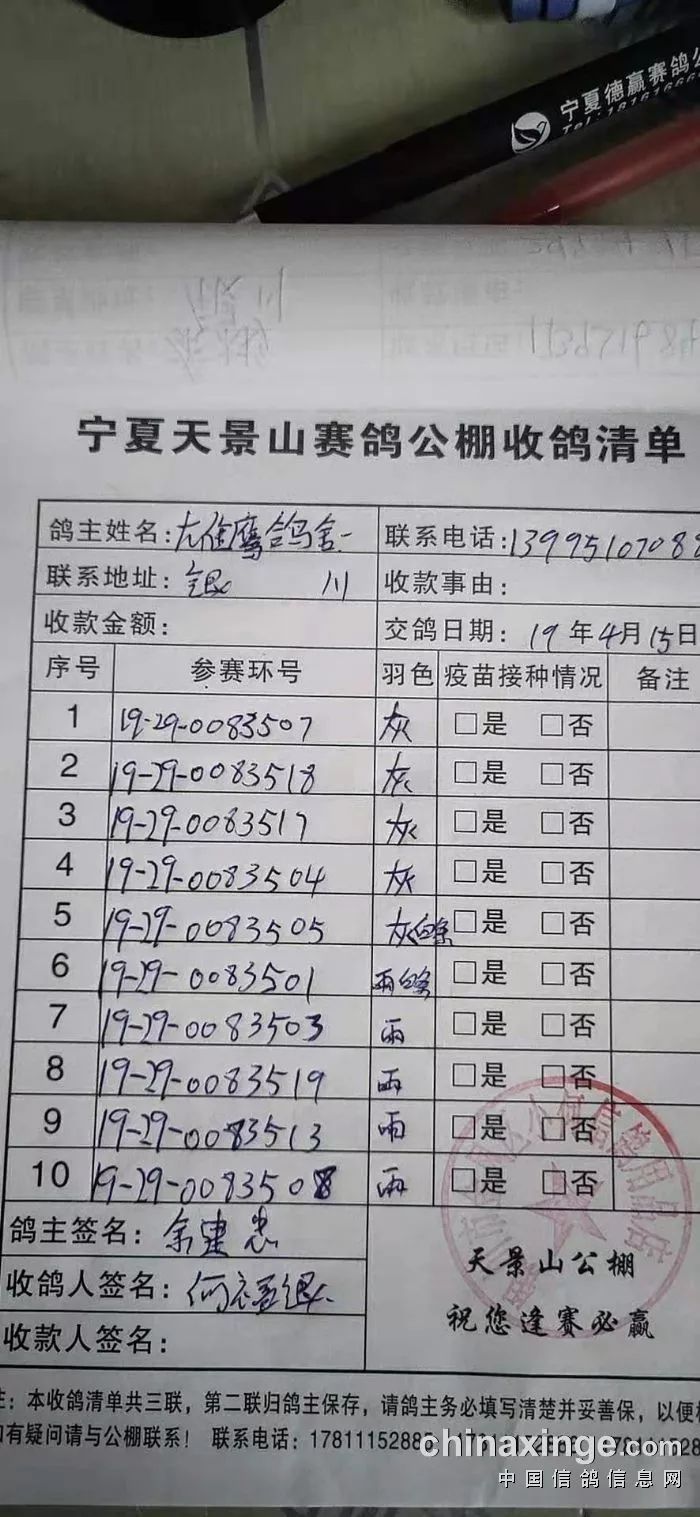 宁夏德赢赛鸽公
宁夏天景山赛鸽公棚收鸽清单
鸽主姓名: 鸽舍 联系电话:1399510708
联系地址: 银 川 收款事由:
收款金额: 交鸽日期: 19年4月15日
序号 参赛环号 羽色 疫苗接种情况 备注
1 19-29-0083507 灰 □是 □否
2 19-29-0083518 灰 □是 □否
3 19-29-0083517 灰 □是 □否
4 19-29-0083504 灰 □是 □否
5 19-29-0083505 灰白条 □是 □否
6 19-29-0083501 雨白条 □是 □否
7 19-29-0083503 雨 □是 □否
8 19-29-0083519 雨 □是 □否
9 19-29-0083513 雨 □是 □否
10 19-29-0083508 雨 □是 □否
鸽主签名: 余建忠
收鸽人签名:
收款人签名:
天景山公棚
祝您逢赛必赢
注: 本收鸽清单共三联，第二联归鸽主保存，请鸽主务必填写清楚并妥善保，以便
有疑问请与公棚联系! 联系电话: 1781115288
chinaxinge.com
中国信鸽信息网